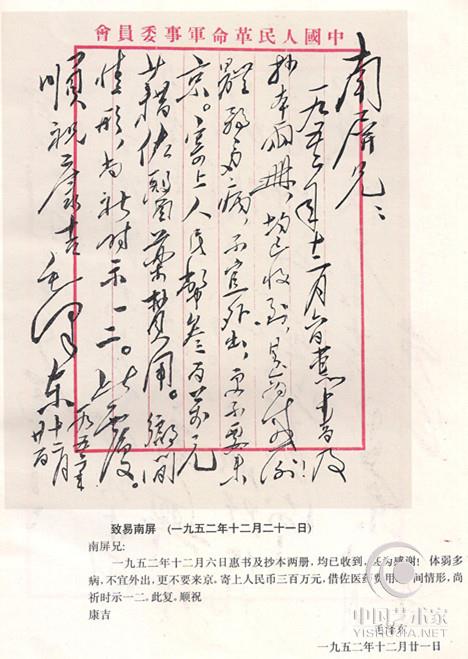 中國人民革命軍事委員會
南屏兄：
一九五二年十二月六日惠書及
抄本兩冊，均已收到，甚為感謝！
體弱多病，不宜外出，更不要來
京。寄上人民幣叁百萬元
藉佐醫藥費用。鄉間
情形，尚祈時示一二。此覆。
順祝康吉 毛澤东
一九五二年
十二月
廿一日
致易南屏 (一九五二年十二月二十一日)
南屏兄:
一九五二年十二月六日惠书及抄本两册，均已收到，甚为感谢! 体弱多
病，不宜外出，更不要来京，寄上人民币三百万元，借佐医药费用。乡间情形，尚
祈时示一二。此复，顺祝
康吉
毛泽东
一九五二年十二月廿一日
中国艺术家